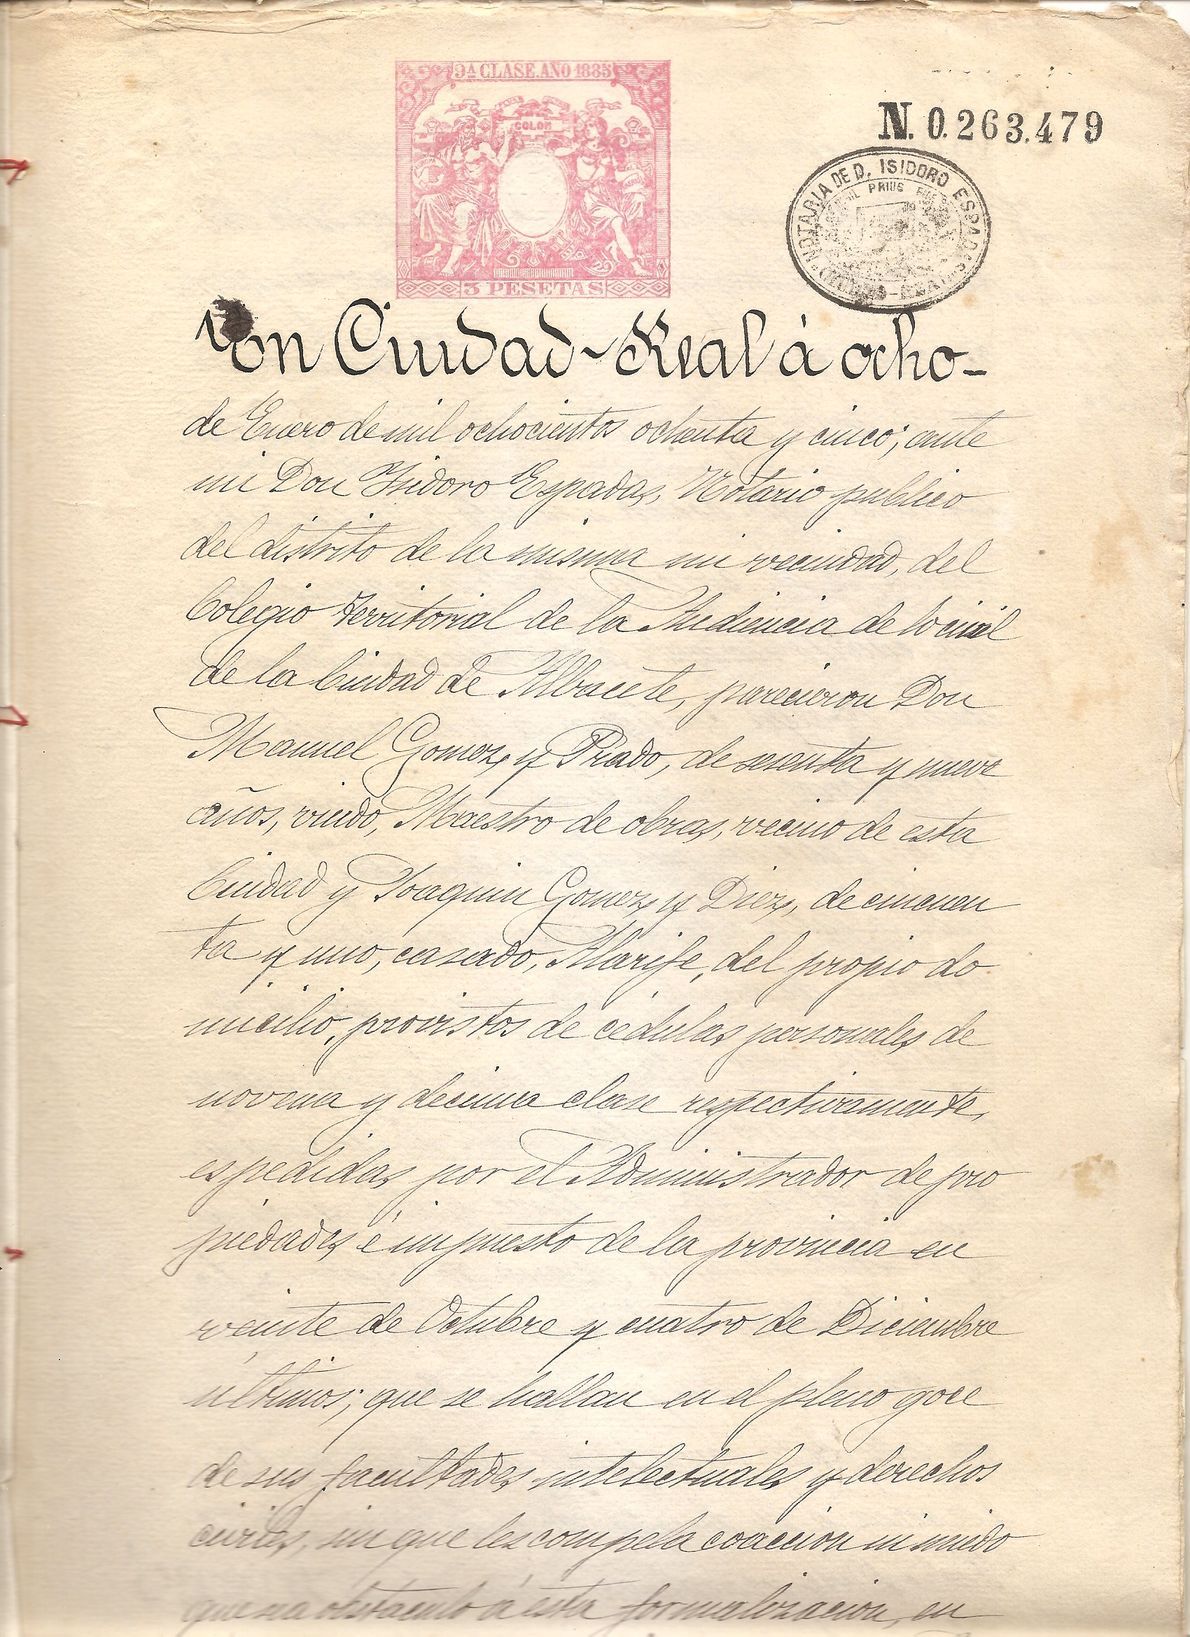 9ª CLASE. AÑO 1885
COLON
3 PESETAS
N. 0.263.479
NOTARIA DE D. ISIDORO ESPADAS
PRIUS
CIUDAD-REAL
En Ciudad-Real á ocho-
de Enero de mil ochocientos ochenta y cinco; ante
mi Don Isidoro Espadas, Notario publico
del distrito de la misma mi vecindad, del
Colegio territorial de la Audiencia de lo civil
de la Ciudad de Albacete, parecieron Don
Manuel Gomez y Prado, de sesenta y nueve
años, viudo, Maestro de obras, vecino de esta
Ciudad y Joaquin Gomez y Diez, de cincuen
ta y uno, casado, Alarife, del propio do
micilio, provistos de cédulas personales de
novena y decima clase respectivamente,
espedidas por el Administrador de pro
piedades é impuesto de la provincia en
veinte de Octubre y cuatro de Diciembre
últimos; que se hallan en el pleno goce
de sus facultades intelectuales y derechos
civiles, sin que les compela coaccion ni miedo
que sea obstáculo á esta formalizacion, en